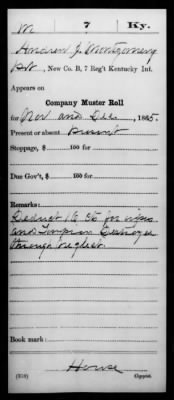 M 7 Ky.
Andrew J. Montgomery
Pvt, New Co. B, 7 Reg't Kentucky Inf.
Appears on
Company Muster Roll
for Nov and Dec, 1865.
Present or absent Present
Stoppage, $ 100 for
Due Gov't, $ 100 for
Remarks:
Deduct
and Tompion
through neglect
Book mark:
(358) Copyist.